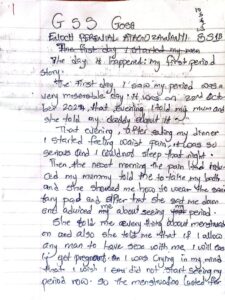 GSS Gosa
The first day I started my men
The day it happened: my first period
story.
The first day I saw my period was a
very miserable day. It was on 22nd octo
ber 2024, that evening I told my mum and
she told my daddy about it.
That evening, after eating my dinner
I started feeling waist pain. it was so
serious and I could not sleep that night.
Then the next morning the pain had
and my mummy told me to take my bath
and she showed me how to wear the sani
tary pad and after that she sat me down
and adviced me about seeing my period.
She told me every thing about menstruati
on and also she told me that if I allow
any man to have sex with me, I will
get pregnant. So I was crying in my mind
that I wish I did not start seeing my
period now. So the menstruation lasted for